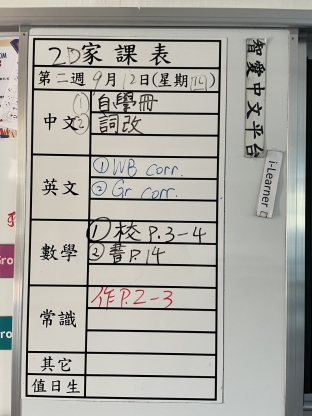 2D家課表
第二週9月12日(星期四)
中文
①自學冊
②詞改
英文
①WB corr.
②Gr corr.
數學
①校P.3-4
②書P.14
常識
作P.2-3
其它
值日生
智愛中文平台
i-Learner